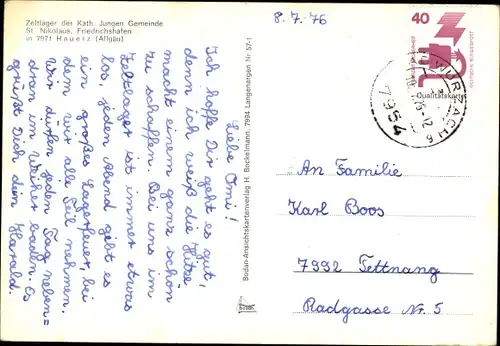 Zeltlager der Kath. Jungen Gemeinde
St. Nikolaus, Friedrichshafen
in 7971 Hauerz (Allgäu)
8.7.76
Liebe Omi!
Ich hoffe Dir geht es gut,
denn ich weiß die Hitze
macht einem ganz schön
zu schaffen. Bei uns im
Zeltlager ist immer etwas
los, jeden abend gebt es
ein großes Lagerfeuer, bei
dem wir alle Teil nehmen.
Wir dürfen jeden Tag neben=
dran im Weiher baden. Es
grüßt Dich dein Harald.
Bodan-Ansichtskartenverlag H. Bockelmann, 7994 Langenargen Nr. 57-1
40
Qualitätskarte
WURZACH
7954
An Familie
Karl Boos
7992 Tettnang
Radgasse Nr. 5